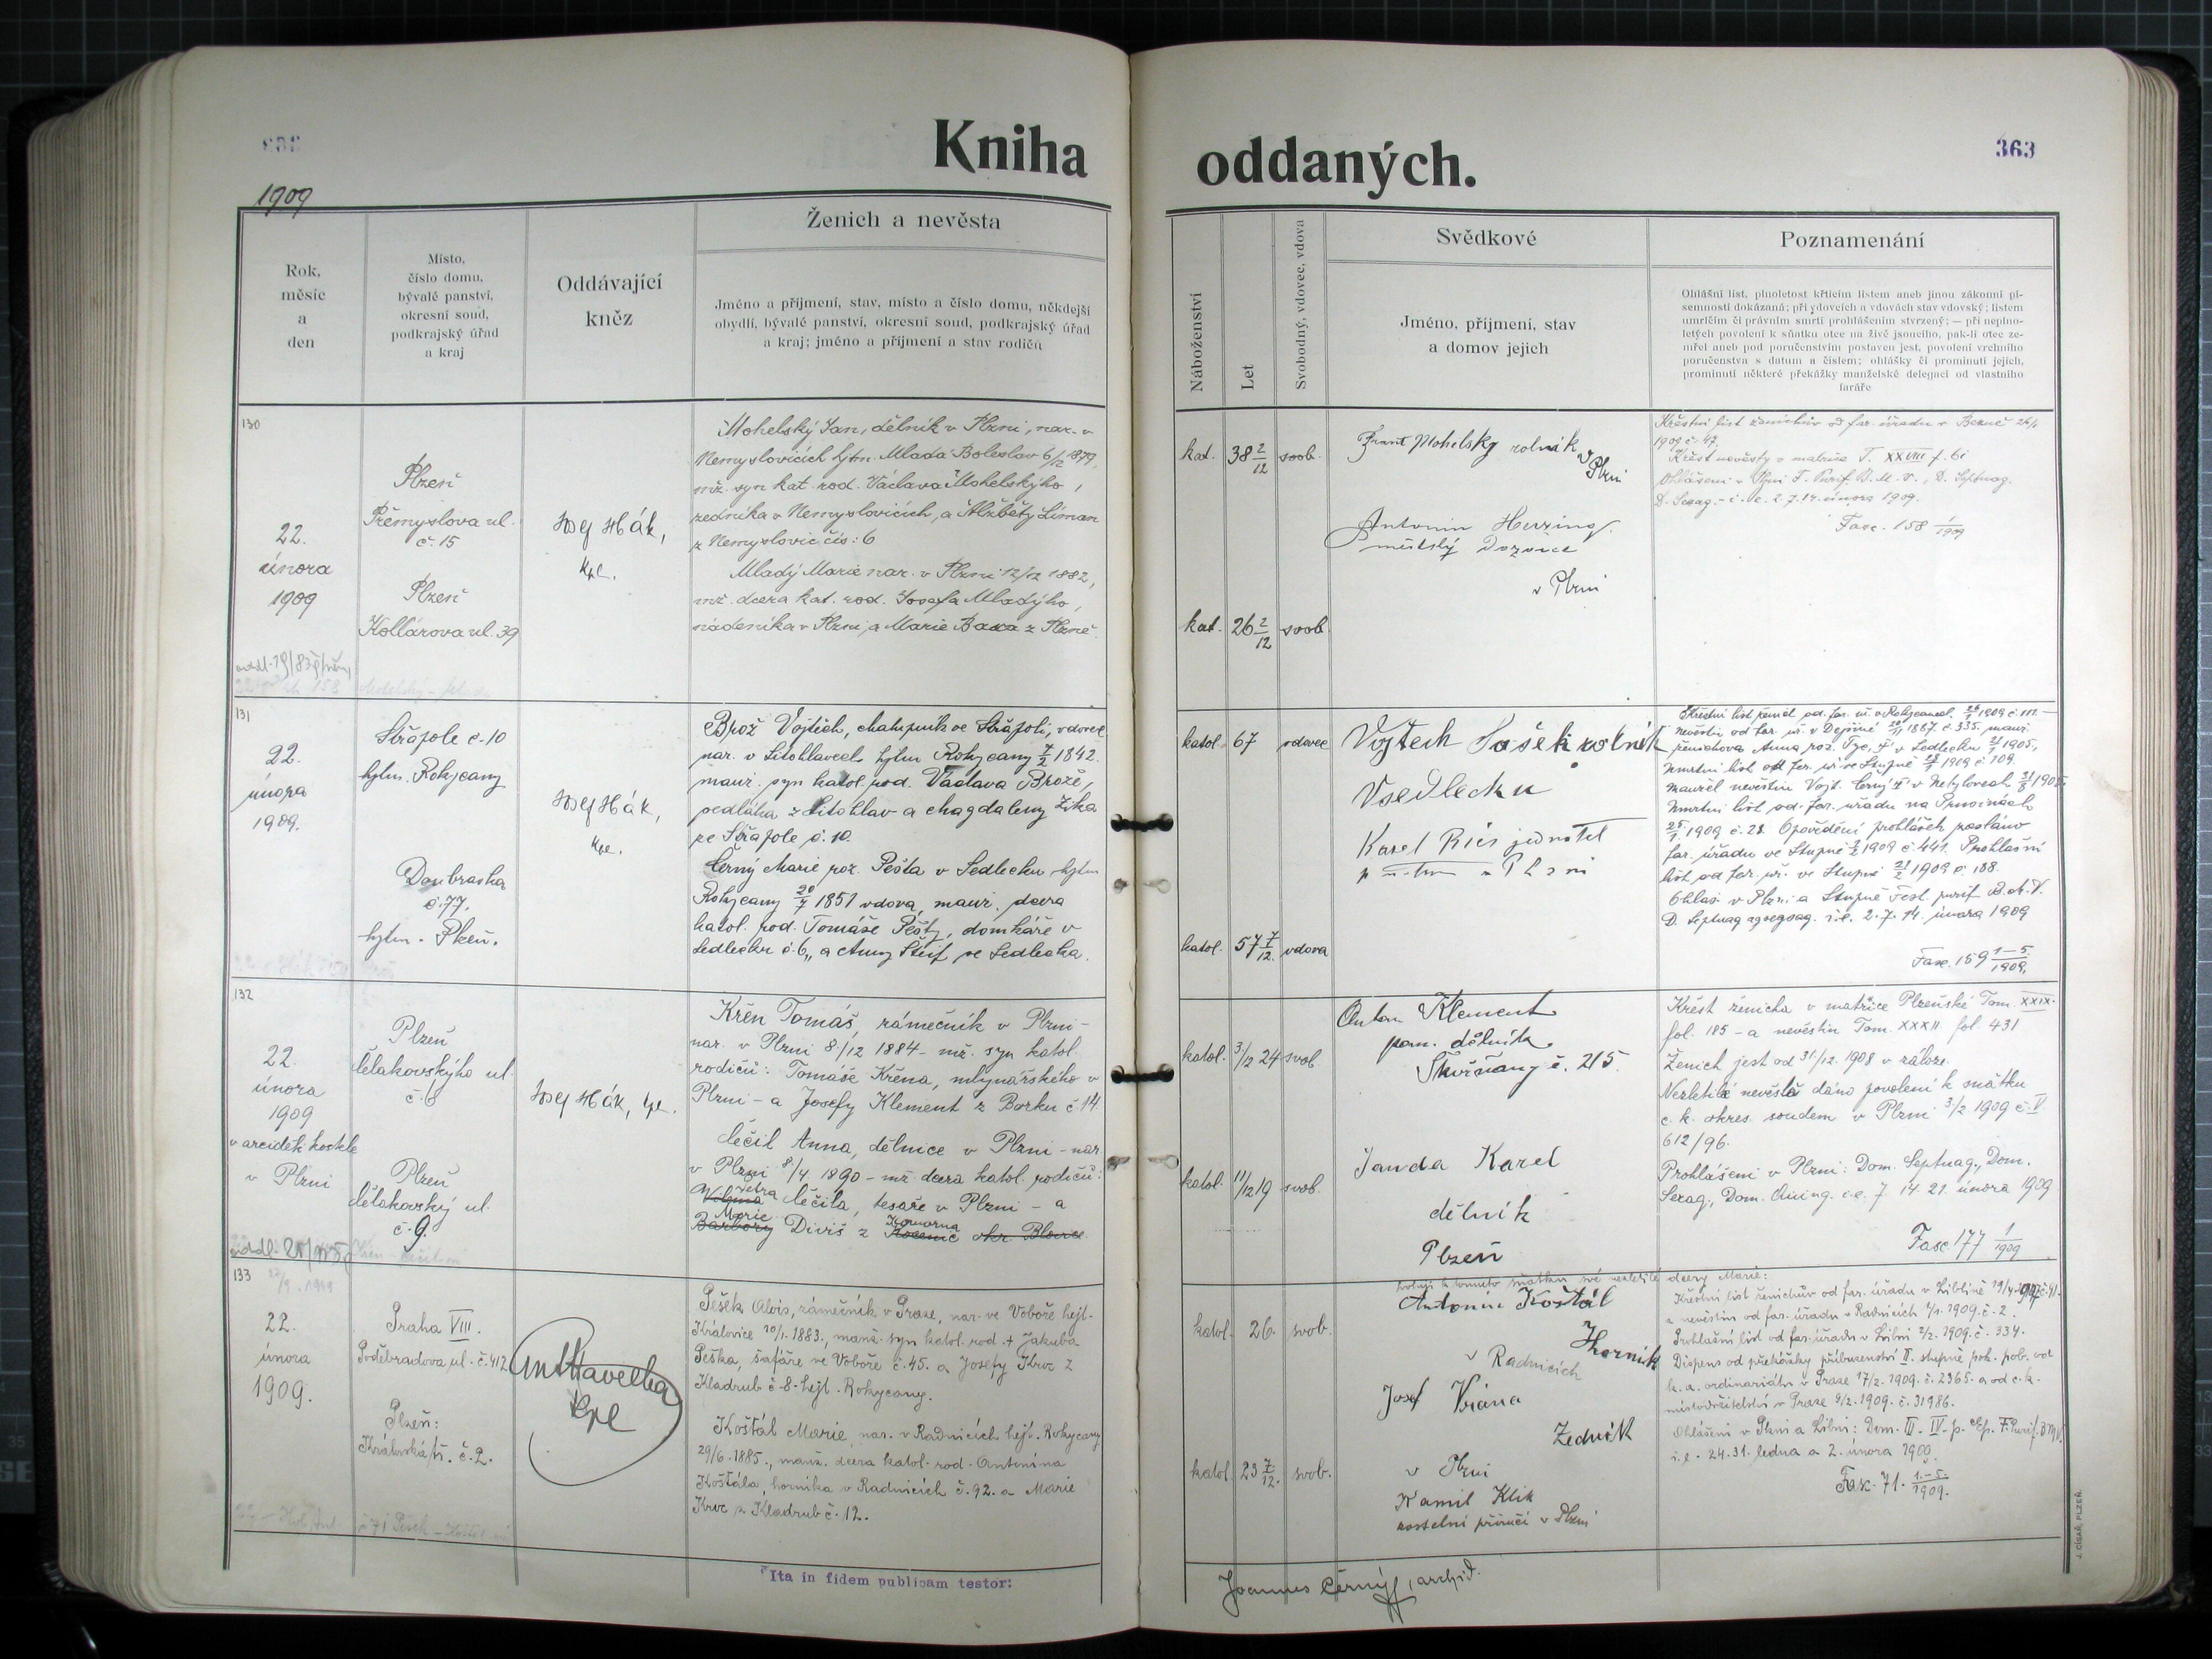 Kniha
oddaných.
363
1909
Rok,
měsíc
a
den
Místo,
číslo domu,
bývalé panství,
okresní soud,
podkrajský úřad
a kraj
Oddávající
kněz
Ženich a nevěsta
Jméno a příjmení, stav, místo a číslo domu, někdejší
obydlí, bývalé panství, okresní soud, podkrajský úřad
a kraj; jméno a příjmení a stav rodičů
Náboženství
Let
Svobodný, vdovec, vdova
Svědkové
Jméno, příjmení, stav
a domov jejich
Poznamenání
Ohlášní list, plnoletost křticím listem aneb jinou zákonní pí-
semností dokázaná; při vdovcích a vdovách stav vdovský; listem
umrlčím či právním smrti prohlášením stvrzený; — při neplno-
letých povolení k sňatku otce na živě jsoucího, pak-li otec ze-
mřel aneb pod poručenstvím postaven jest, povolení vrchního
poručenstva s datum a číslem; ohlášky či prominutí jejich,
prominutí některé překážky manželské delegací od vlastního
faráře
130
22.
února
1909
Plzeň
Přemyslova ul.
č. 15
Plzeň
Kollárova ul. 39
Josef Hák,
kpl.
Mohelský Jan, dělník v Plzni, nar. v
Nemyslovicích hjtm. Mladá Boleslav 6/12 1879,
mž. syn kat. rod. Václava Mohelskýho,
zedníka v Nemyslovicích, a Alžběty Liman
z Nemyslovic čís: 6
Mladý Marie nar. v Plzni 12/12 1882,
mž. dcera kat. rod. Josefa Mladýho,
nádeníka v Plzni, a Marie Baxa z Plzně.
kat. 38 2/12 svob.
kat. 26 2/12 svob.
Frant Mohelsky rolník v
Plzni
Antonin Herzing
městský Dozorce
v Plzni
Křestní list ženichův od far. úřadu v Bezně
1909 č. 47,
Křest nevěsty v matrice T. XXVIII f. 61
Ohlášeni v Plzni F. Purif. B. M. V., D. Septuag.
D. Sexag. - i. e. 2. 7. 14. února 1909.
Fasc. 158 1/1909
131
22.
února
1909.
Střapole č. 10
hjtm. Rokycany
Doubravka
č. 77.
hjtm. Plzeň.
Josef Hák,
kpl.
Brož Vojtěch, chalupník ve Střapoli, vdovec
nar. v Litohlavech hjtm Rokycany 7/2 1842.
manž. syn katol. rod. Václava Brože,
sedláka z Litohlav a Magdaleny Zíka
ze Střapole č. 10.
Černý Marie roz. Pešta v Sedlecku hjtm
Rokycany 20/7 1851 vdova, manž. dcera
katol. rod. Tomáše Pešty, domkáře v
Sedlecku č. 6,, a Anny Štif ze Sedlecka.
katol. 67 vdovec
katol. 57 7/12. vdova
Vojtech Sašek rolník
Vsedlecku
Karel Ries jednatel
v Plzni
nevěsti, od far. úř. v Dejšině 1867. č. 335. manž.
ženichova Anna roz. Tyc, † v Sedlecku 1905,
úmrtní list od far. úř. ve Stupně 1909 č. 109.
úmrtní list od far. úřadu na Prusinách
1909 č. 21. Opovědění prohlášek posláno
far. úřadu ve Stupně 1909 č. 441. Prohlašní
list od far. úř. ve Stupně 1909 č. 188.
Ohlaš. v Plzni a Stupně Fest. purif B. M. V.
D. Septuag i. e. 2. 7. 14. února 1909
Fasc. 159 1-5/1909.
132
22.
února
1909
v arciděk. kostele
v Plzni
Plzeň
Čelakovskýho ul.
č. 8
Plzeň
Čelakovský ul.
č. 9.
Josef Hák, kpl.
Křen Tomáš, zámečník v Plzni -
nar. v Plzni 8/12 1884 - mž. syn katol.
rodičů: Tomáše Křena, mlynářského v
Plzni - a Josefy Klement z Borku č. 14.
Léčil Anna, dělnice v Plzni - nar.
v Plzni 8/4 1890 - mž. dcera katol. rodičů:
Petra Léčila, tesaře v Plzni - a
Marie
Barbory Diviš z Komorna okr. Blovice
katol. 3/12 24 svob
katol. 11/12 19 svob.
Anton Klement
pom. dělník
Skvrňany č. 215.
Janda Karel
dělník
Plzeň
Křest ženicha v matrice Plzeňské Tom. XXIX.
fol. 185 - a nevěstin Tom. XXXII fol. 431
Ženich jest od 31/12. 1908 v záloze.
Nezletilé nevěstě dáno povolení k sňatku
c. k. okres. soudem v Plzni 3/2 1909 č. V
612/96.
Prohlášeni v Plzni: Dom. Septuag., Dom.
Sexag., Dom. Quinq. i. e. 7. 14. 21. února 1909
Fasc. 177 1/1909
133
22.
února
1909.
Praha VIII.
Poděbradova ul. č. 412
Plzeň:
Královská tř. č. 2.
Ant Havelka
kpl
Pešek Alois, zámečník v Praze, nar. ve Voboře hejt.
Královice 20/1. 1883., manž. syn katol. rod. + Jakuba
Peška, šafáře ve Voboře č. 45. a Josefy Krve z
Kladrub č. 8. hejt. Rokycany.
Košťál Marie, nar. v Radnicích hejt. Rokycany
29/6. 1885., manž. dcera katol. rod. Antonína
Košťála, horníka v Radnicích č. 92. a Marie
Krve z Kladrub č. 12.
katol. 26. svob.
katol. 23 7/12. svob.
svoluji k tomuto sňatku své nezletilé dcery Marie:
Antonín Košťál
Horník
v Radnicích
Josef Vrána
Zedník
v Plzni
Kamil Klik
kostelní příručí v Plzni
Křestní list ženichův od far. úřadu v Liblíně
a nevěstin od far. úřadu v Radnicích 4/1. 1909. č. 2.
Prohlašní list od far. úřadu v Libni 2/2. 1909. č. 334.
Dispens od překážky příbuzenství II. stupně pok. pob. od
k. a. ordinariátu v Praze 17/2. 1909. č. 2365. a od c. k.
místodržitelství v Praze 9/2. 1909. č. 31986.
Ohlášeni v Plzni a Libni: Dom. III. IV. p. Ep. F. Purif. B M V.
i. e. 24. 31. ledna a 2. února 1909.
Fasc. 71. 1.-5./1909.
Ita in fidem publicam testor:
Joannes Černý, archid.
J. CÍSAŘ, PLZEŇ.